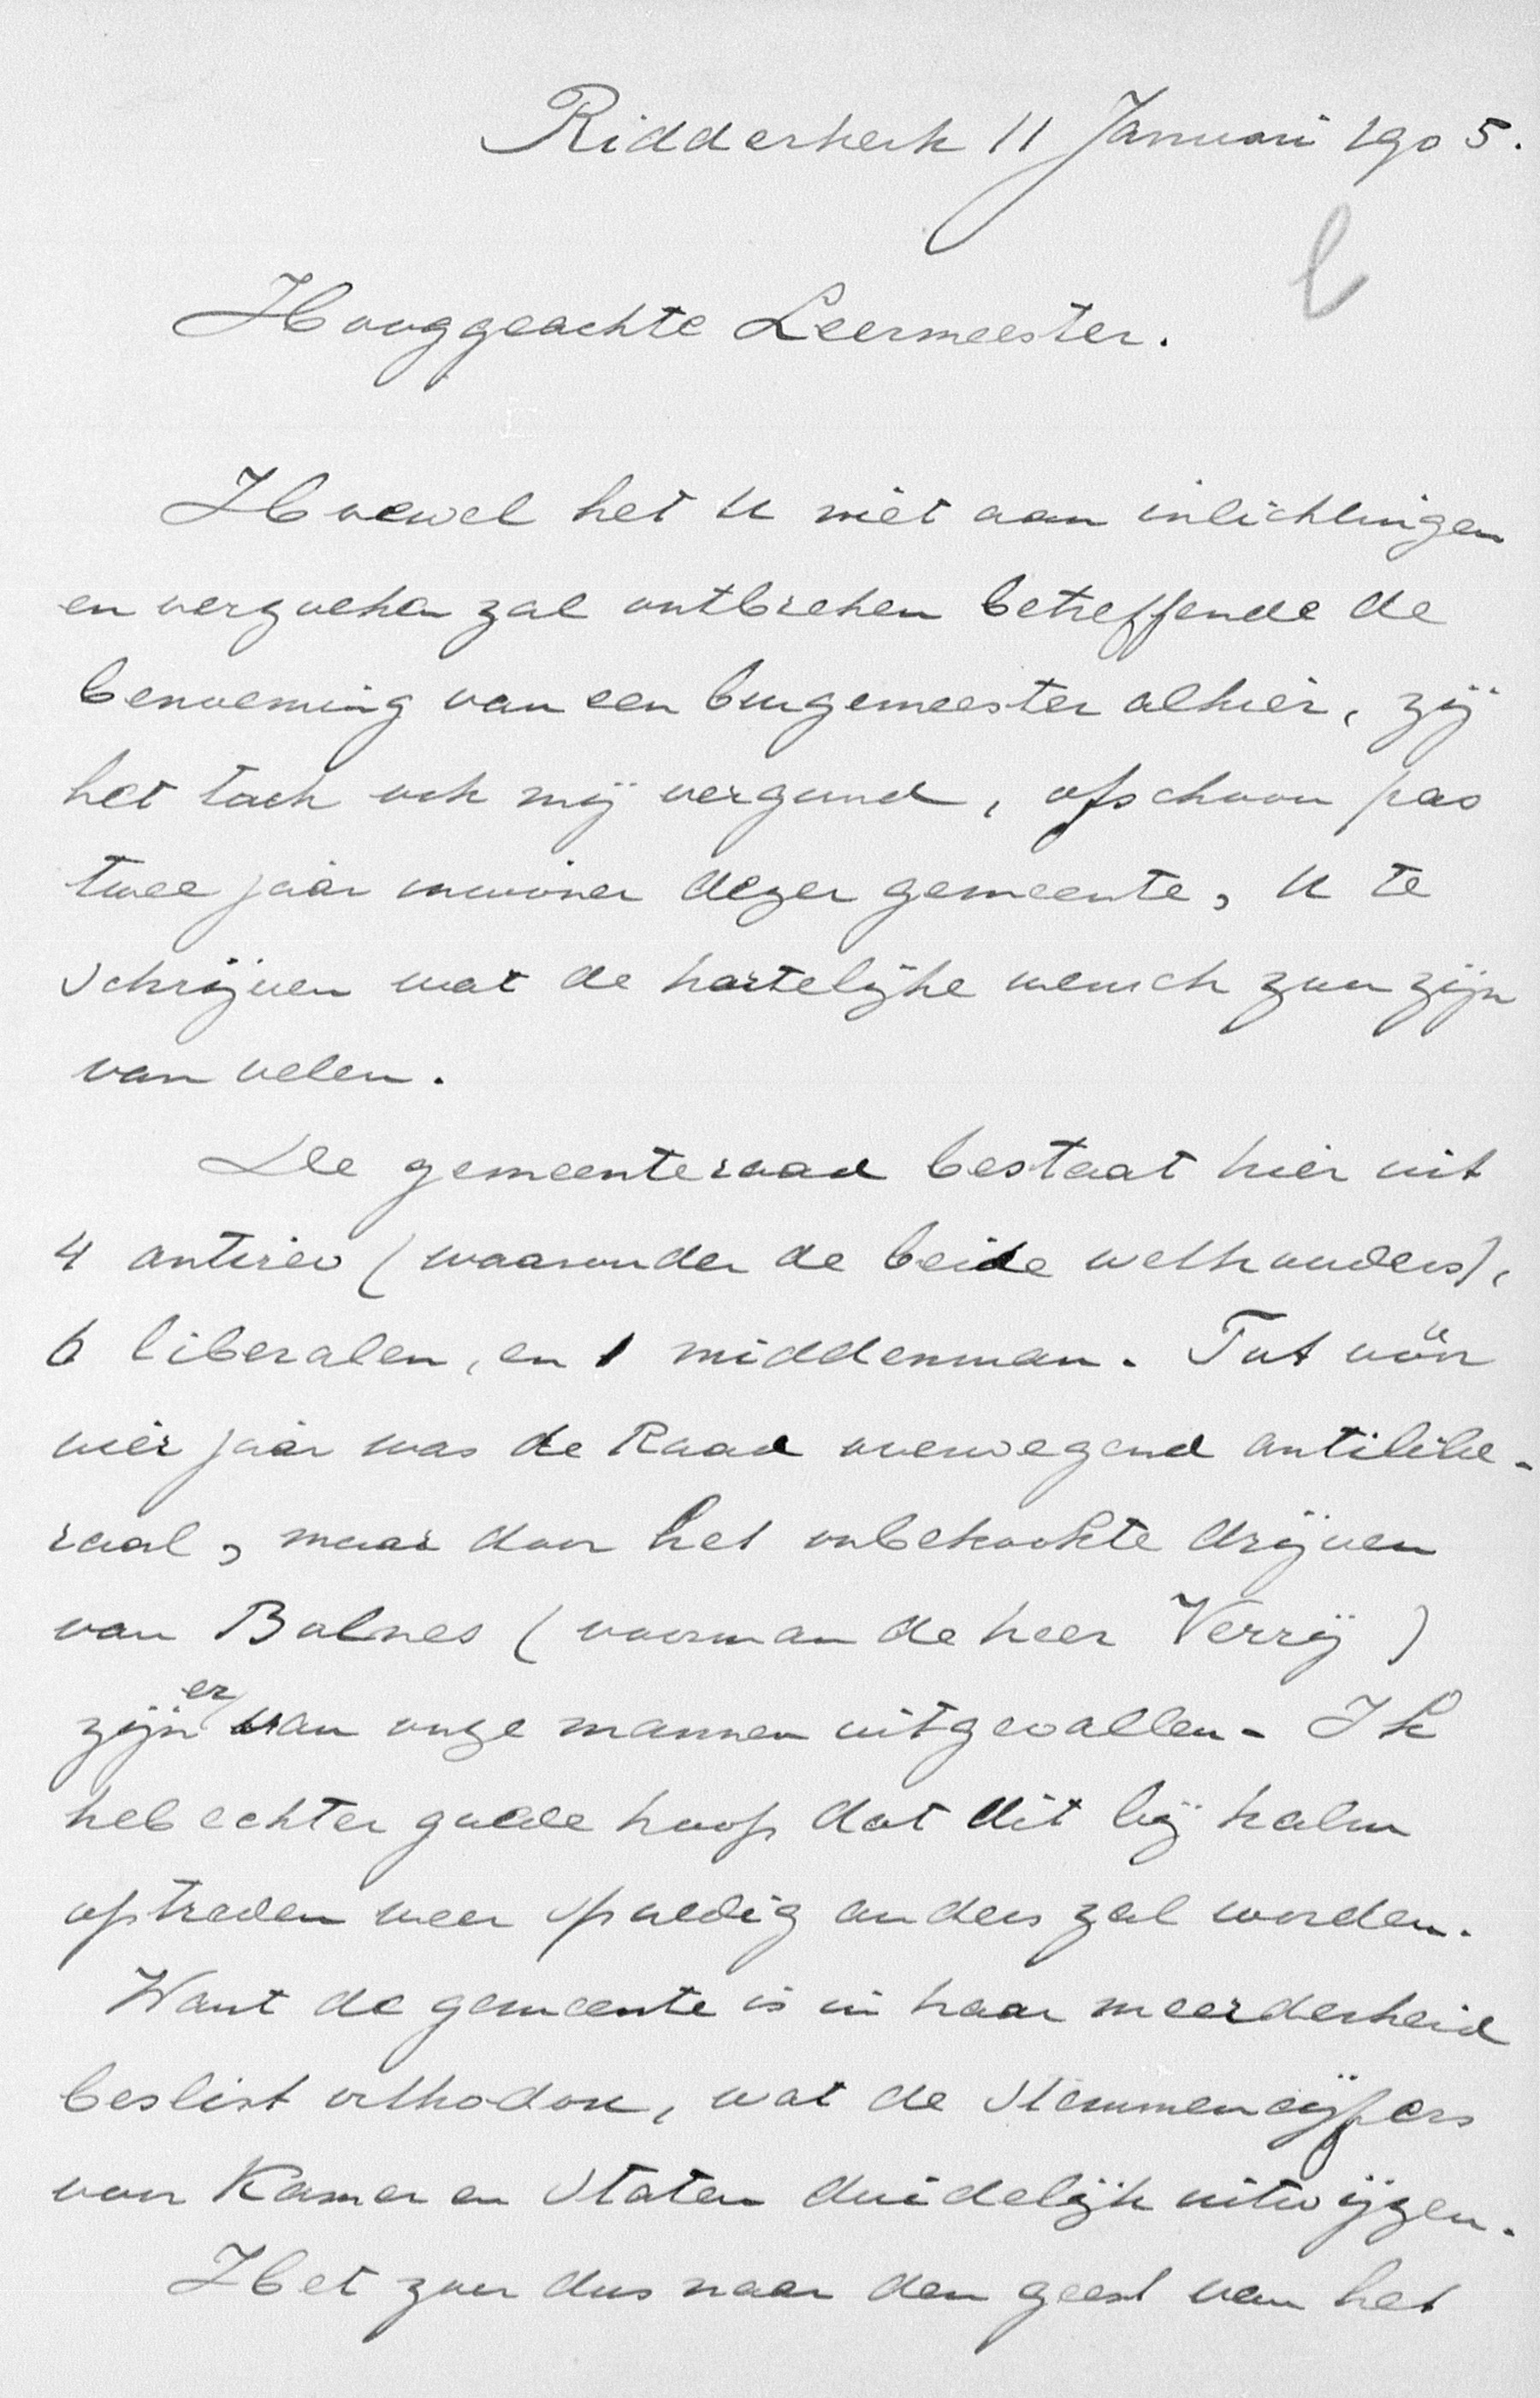 Ridderkerk 11 Januari 1905.
Hooggeachte Leermeester.
Hoewel het U niet aan inlichtingen
en verzoeken zal ontbreken betreffende de
benoeming van een burgemeester alhier, zij
het toch ook mij vergund, ofschoon pas
twee jaar inwoner dezer gemeente, U te
schrijven wat de hartelijke wensch zou zijn
van velen.
De gemeenteraad bestaat hier uit
4 antirev (waaronder de beide wethouders),
6 liberalen, en 1 middenman. Tot vóór
vier jaar was de Raad overwegend antilibe-
raal, maar door het onbekookte drijven
van Bolnes (voorman de heer Verrij)
zijn er van onze mannen uitgevallen. Ik
heb echter goede hoop dat dit bij kalm
optreden weer spoedig anders zal worden.
Want de gemeente is in haar meerderheid
beslist orthodox, wat de stemmencijfers
voor Kamer en Staten duidelijk uitwijzen.
Het zou dus naar den geest van het